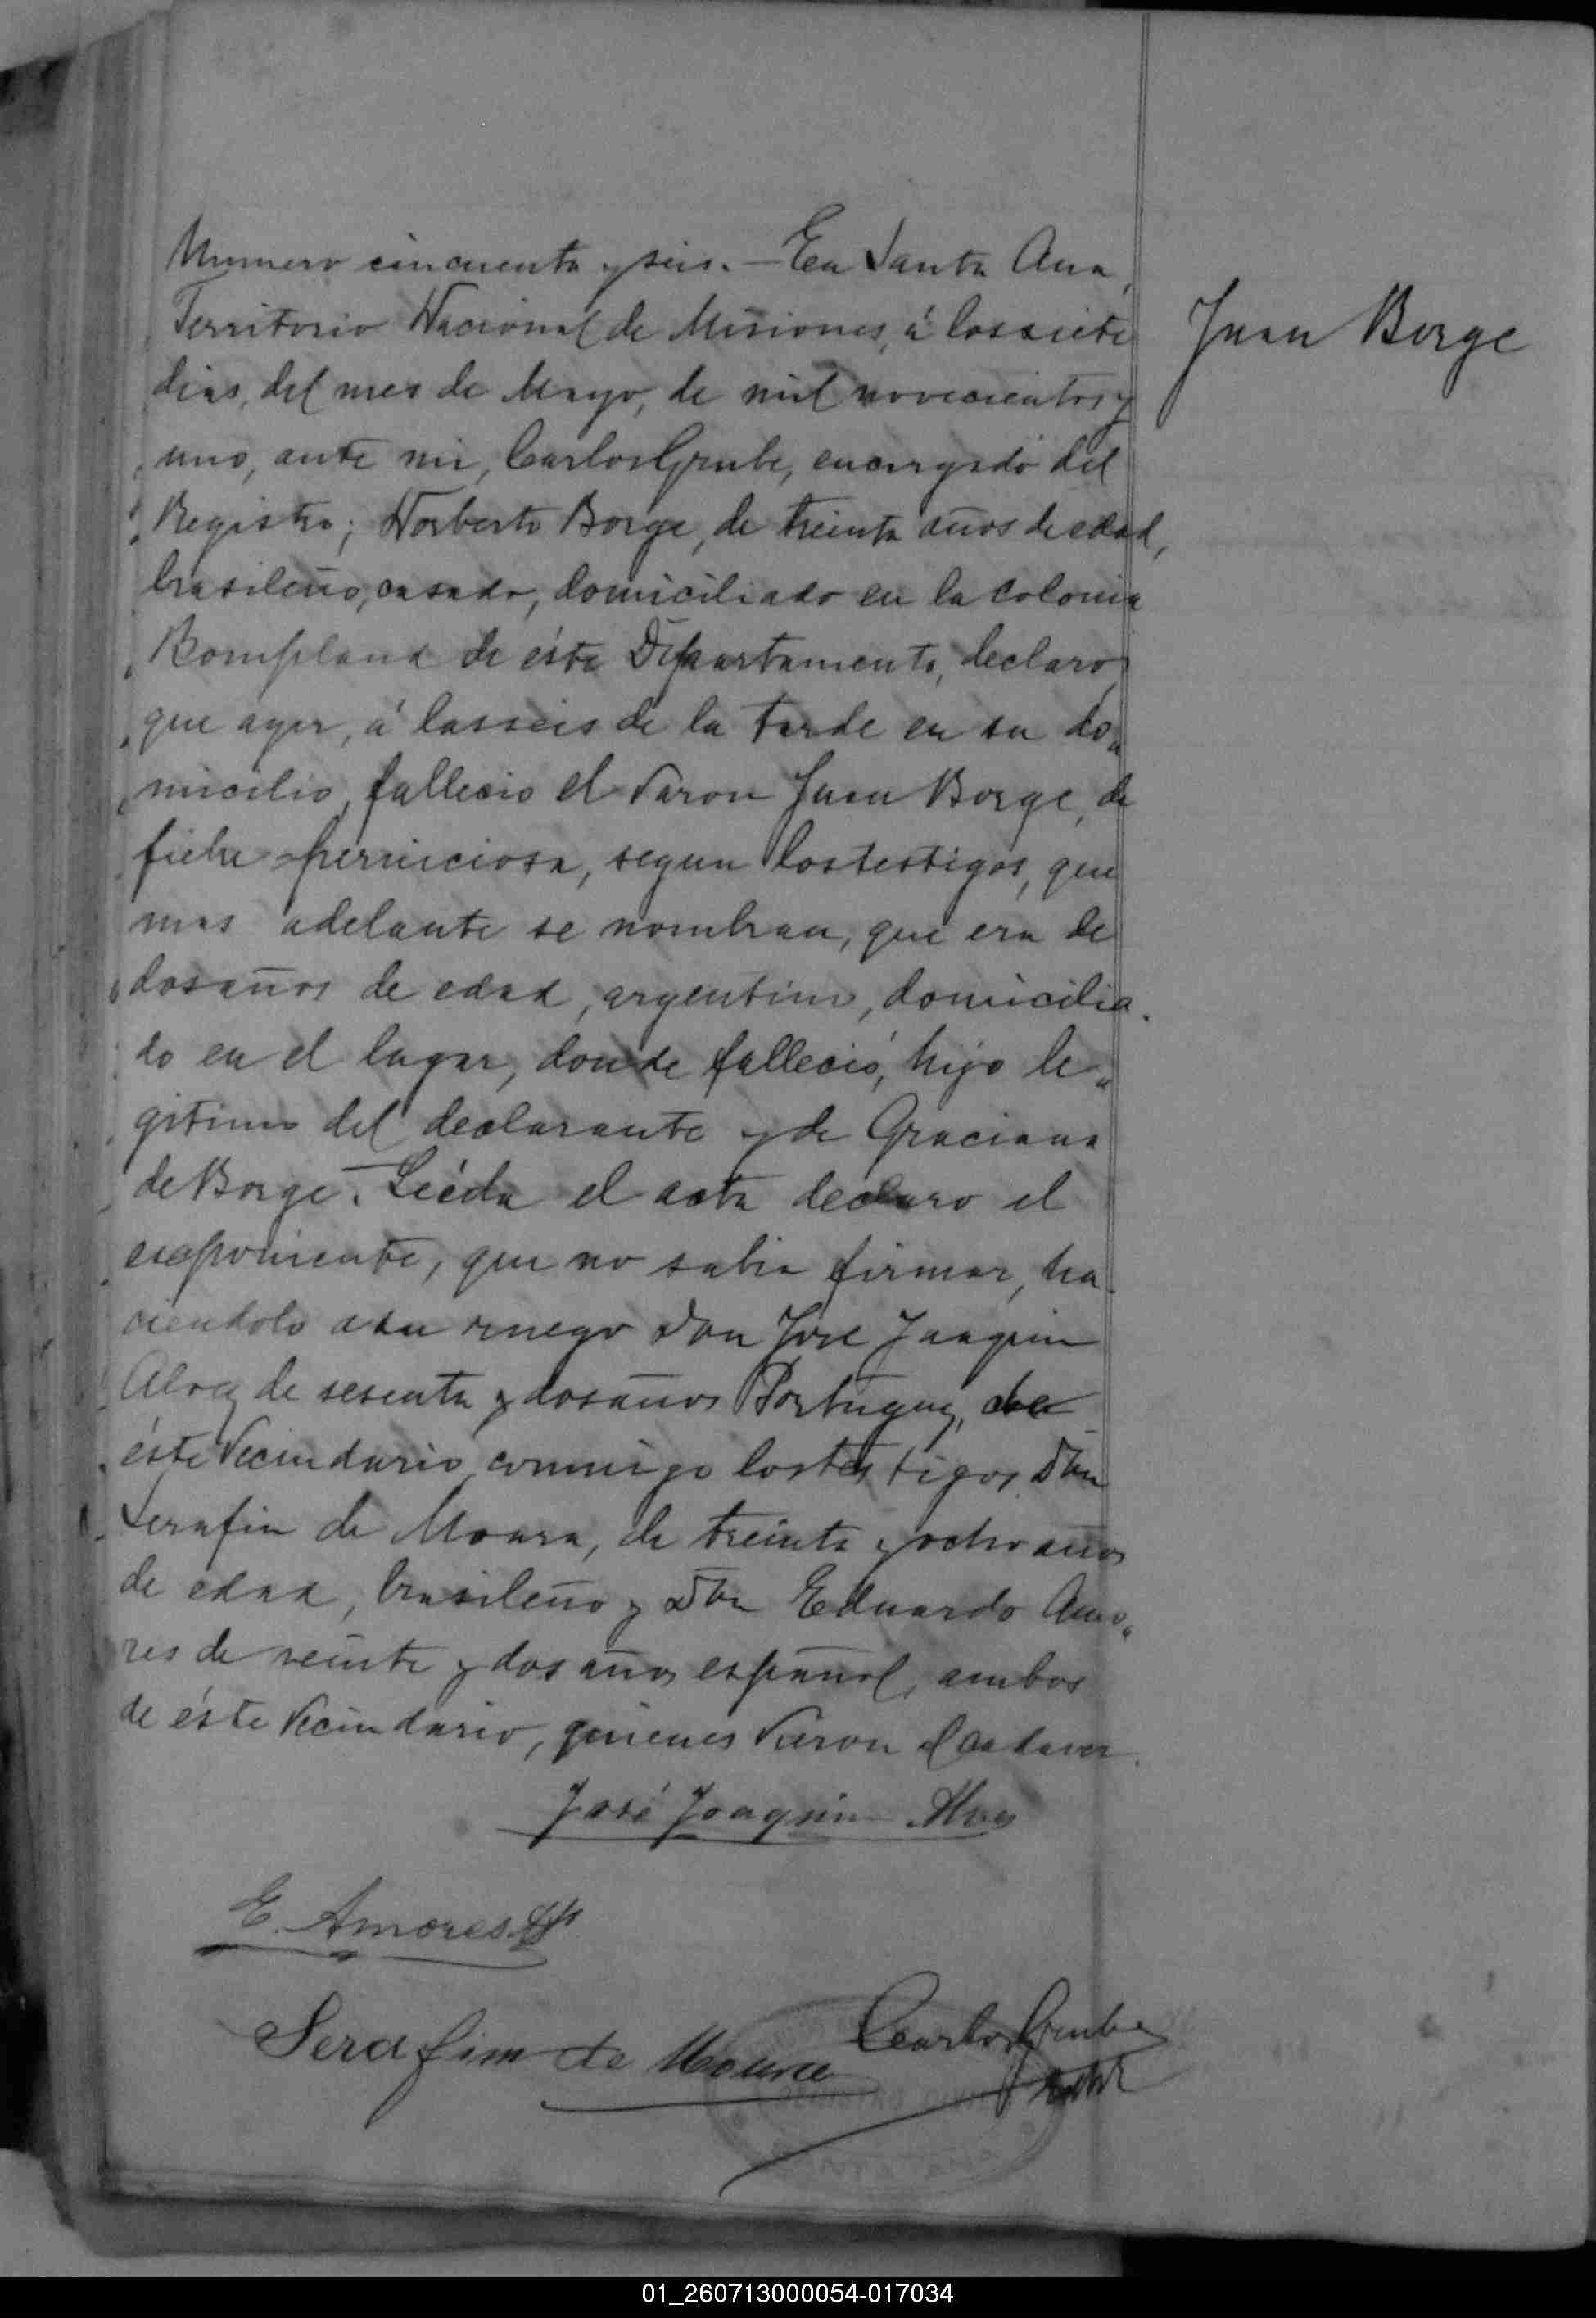 Numero cincuenta y seis. - En Santa Ana,
Territorio Nacional de Misiones, á los siete
dias, del mes de Mayo, de mil novecientos y
uno, ante mi, Carlos Grube, encargado del
Registro; Norberto Borge, de treinta años de edad,
brasileño, casado, domiciliado en la colonia
Bompland de éste Departamento, declaro,
que ayer, á las seis de la tarde en su do„
micilio, fallecio el varon Juan Borge, de
fiebre perniciosa, segun los testigos, que
mas adelante se nombran, que era de
dos años de edad, argentino, domicilia„
do en el lugar, donde falleció, hijo le„
gitimo del declarante y de Graciana
de Borge. - Leéda el acta declaro el
exponiente, que no sabia firmar, ha„
ciendolo a su ruego Don José Joaquin
Alvez de sesenta y dos años Portuguez, de
éste Vecindario, conmigo los testigos Don
Serafin de Moura, de treinta y ocho años
de edad, brasileño y Don Eduardo Amo„
res de veinte y dos años español, ambos
de éste Vecindario, quienes vieron el cadaver.
Juan Borge
José Joaquim Alves
E. Amores
Serafim de Moura
Carlos Grube
01_260713000054-017034